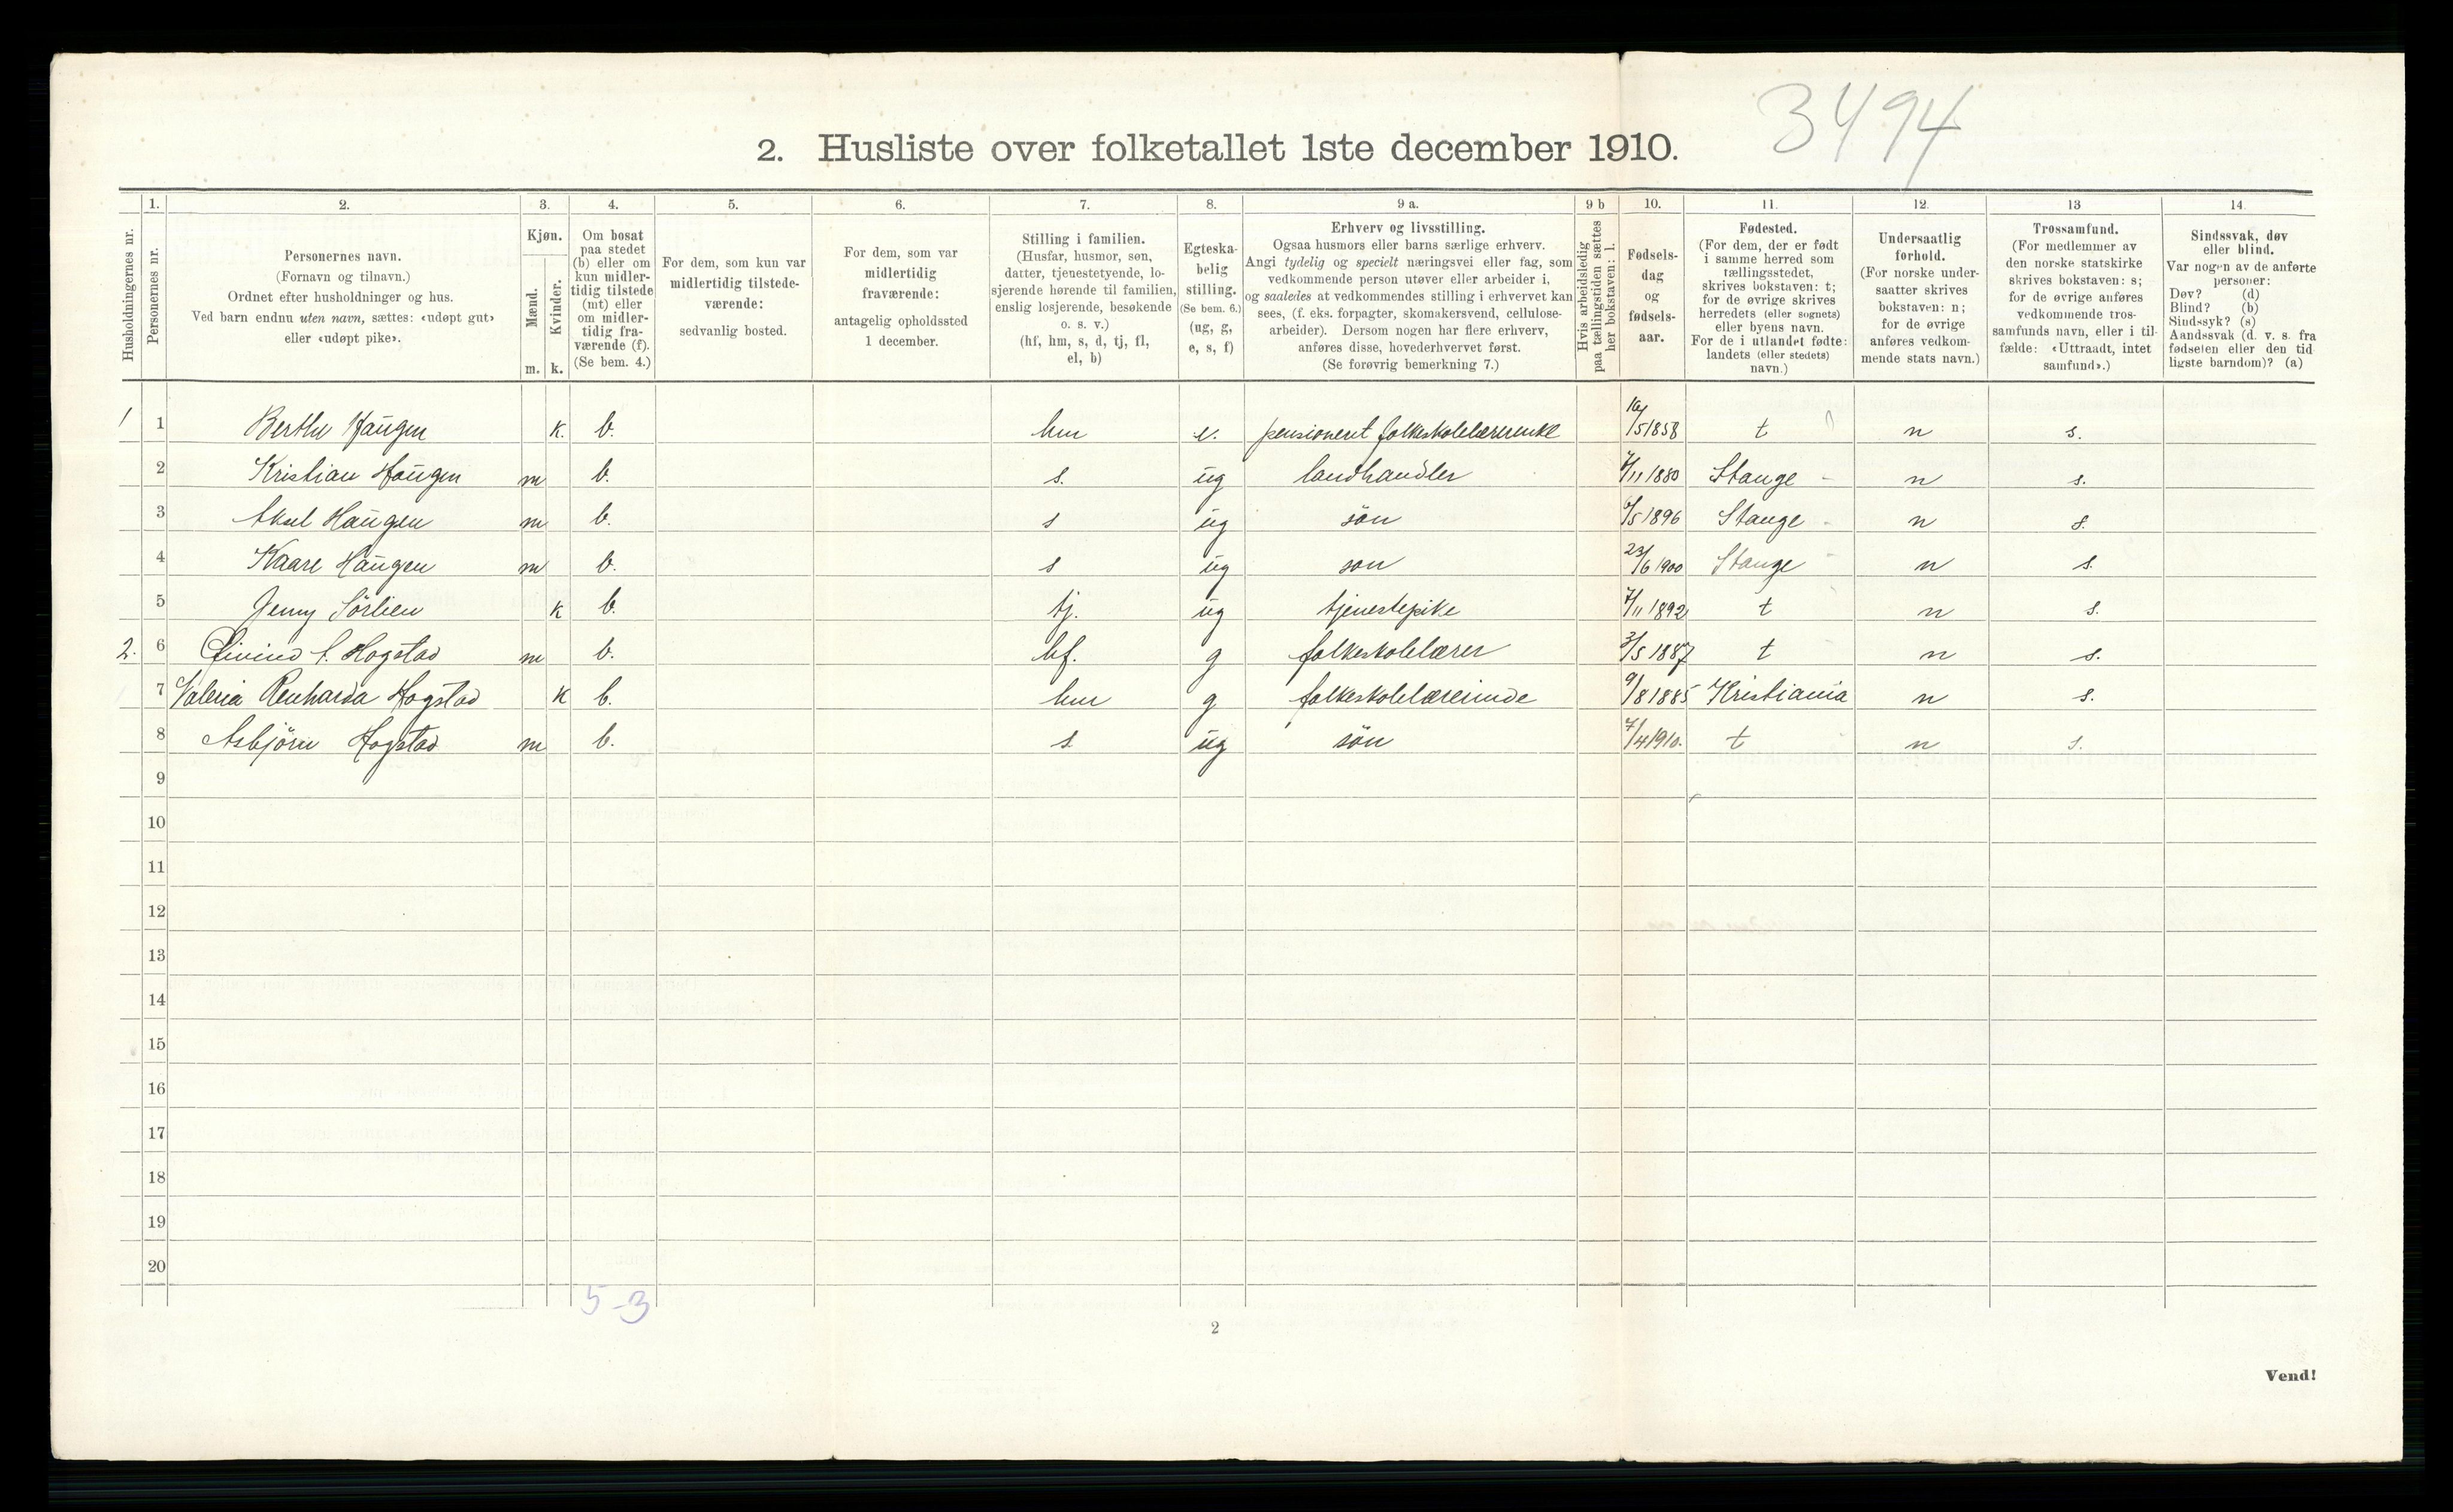 3494
2. Husliste over folketallet 1ste december 1910.
Husholdningernes nr.
1.
Personernes nr.
2.
Personernes navn.
(Fornavn og tilnavn.)
Ordnet efter husholdninger og hus.
Ved barn endnu uten navn, sættes: «udøpt gut»
eller «udøpt pike».
3.
Kjøn.
Mænd.
Kvinder.
m. k.
4.
Om bosat
paa stedet
(b) eller om
kun midler-
tidig tilstede
(mt) eller
om midler-
tidig fra-
værende (f).
(Se bem. 4.)
5.
For dem, som kun var
midlertidig tilstede-
værende:
sedvanlig bosted.
6.
For dem, som var
midlertidig
fraværende:
antagelig opholdssted
1 december.
7.
Stilling i familien.
(Husfar, husmor, søn,
datter, tjenestetyende, lo-
sjerende hørende til familien,
enslig losjerende, besøkende
o. s. v.)
(hf, hm, s, d, tj, fl,
el, b)
8.
Egteska-
belig
stilling.
(Se bem. 6.)
(ug, g,
e, s, f)
9 a.
Erhverv og livsstilling.
Ogsaa husmors eller barns særlige erhverv.
Angi tydelig og specielt næringsvei eller fag, som
vedkommende person utøver eller arbeider i,
og saaledes at vedkommendes stilling i erhvervet kan
sees, (f. eks. forpagter, skomakersvend, cellulose-
arbeider). Dersom nogen har flere erhverv,
anføres disse, hovederhvervet først.
(Se forøvrig bemerkning 7.)
9 b
Hvis arbeidsledig
paa tællingstiden sættes
her bokstaven: l.
10.
Fødsels-
dag
og
fødsels-
aar.
11.
Fødested.
(For dem, der er født
i samme herred som
tællingsstedet,
skrives bokstaven: t;
for de øvrige skrives
herredets (eller sognets)
eller byens navn.
For de i utlandet fødte:
landets (eller stedets)
navn.)
12.
Undersaatlig
forhold.
(For norske under-
saatter skrives
bokstaven: n;
for de øvrige
anføres vedkom-
mende stats navn.)
13
Trossamfund.
(For medlemmer av
den norske statskirke
skrives bokstaven: s;
for de øvrige anføres
vedkommende tros-
samfunds navn, eller i til-
fælde: «Uttraadt, intet
samfund».)
14.
Sindssvak, døv
eller blind.
Var nogen av de anførte
personer:
Døv? (d)
Blind? (b)
Sindssyk? (s)
Aandssvak (d. v. s. fra
fødselen eller den tid-
ligste barndom)? (a)
1 1 Berthe Haugen k. b. hm e. pensioneret folkeskolelærerenke 16/5 1858 t n s.
2 Kristian Haugen m b. s. ug landhandler 7/11 1880 Stange n s.
3 Aksel Haugen m b. s ug søn /5 1896 Stange n s.
4 Kaare Haugen m b. s ug søn 23/6 1900 Stange n s.
5 Jenny Sörlien k b. tj. ug tjenestepike 7/11 1892 t n s.
2. 6 Eivind Hogstad m b. hf. g folkeskolelærer 3/5 1887 t n s.
7 Valeria Renharda Hogstad k b. hm g folkeskolelærerinde 9/8 1885 Kristiania n s.
8 Asbjörn Hogstad m b. s ug søn 7/4 1910. t n s.
9
10
11
12
13
14
15
16
17
18
19
20
5-3
2
Vend!